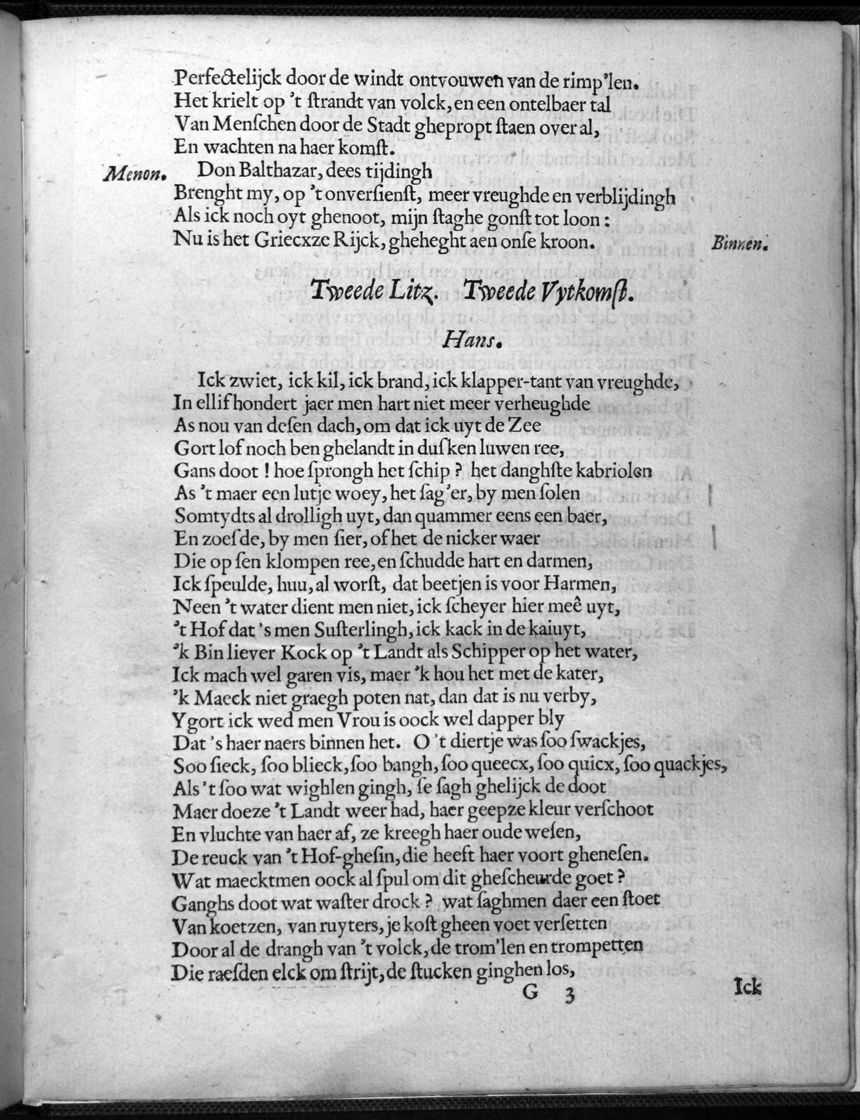 Perfectelijck door de windt ontvouwen van de rimp'len.
Het krielt op 't ſtrandt van volck, en een ontelbaer tal
Van Menſchen door de Stadt ghepropt ſtaen over al,
En wachten na haer komſt.
Menon. Don Balthazar, dees tijdingh
Brenght my, op 't onverſienſt, meer vreughde en verblijdingh
Als ick noch oyt ghenoot, mijn ſtaghe gonſt tot loon:
Nu is het Griecxze Rijck, gheheght aen onſe kroon. Binnen.
Tweede Litz. Tweede Vytkomſt.
Hans.
Ick zwiet, ick kil, ick brand, ick klapper-tant van vreughde,
In ellif hondert jaer men hart niet meer verheughde
As nou van deſen dach, om dat ick uyt de Zee
Gort lof noch ben ghelandt in duſken luwen ree,
Gans doot! hoe ſprongh het ſchip? het danghſte kabriolen
As 't maer een lutje woey, het ſag'er, by men ſolen
Somtydts al drolligh uyt, dan quammer eens een baer,
En zoeſde, by men ſier, of het de nicker waer
Die op ſen klompen ree, en ſchudde hart en darmen,
Ick ſpeulde, huu, al worſt, dat beetjen is voor Harmen,
Neen 't water dient men niet, ick ſcheyer hier meê uyt,
't Hof dat 's men Suſterlingh, ick kack in de kaiuyt,
'k Bin liever Kock op 't Landt als Schipper op het water,
Ick mach wel garen vis, maer 'k hou het met de kater,
'k Maeck niet graegh poten nat, dan dat is nu verby,
Ygort ick wed men Vrou is oock wel dapper bly
Dat 's haer naers binnen het. O 't diertje was ſoo ſwackjes,
Soo ſieck, ſoo blieck, ſoo bangh, ſoo queecx, ſoo quicx, ſoo quackjes,
Als 't ſoo wat wighlen gingh, ſe ſagh ghelijck de doot
Maer doeze 't Landt weer had, haer geepze kleur verſchoot
En vluchte van haer af, ze kreegh haer oude weſen,
De reuck van 't Hof-gheſin, die heeft haer voort gheneſen.
Wat maecktmen oock al ſpul om dit gheſcheurde goet?
Ganghs doot wat waſter drock? wat ſaghmen daer een ſtoet
Van koetzen, van ruyters, je koſt gheen voet verſetten
Door al de drangh van 't volck, de trom'len en trompetten
Die raeſden elck om ſtrijt, de ſtucken ginghen los,
G 3 Ick